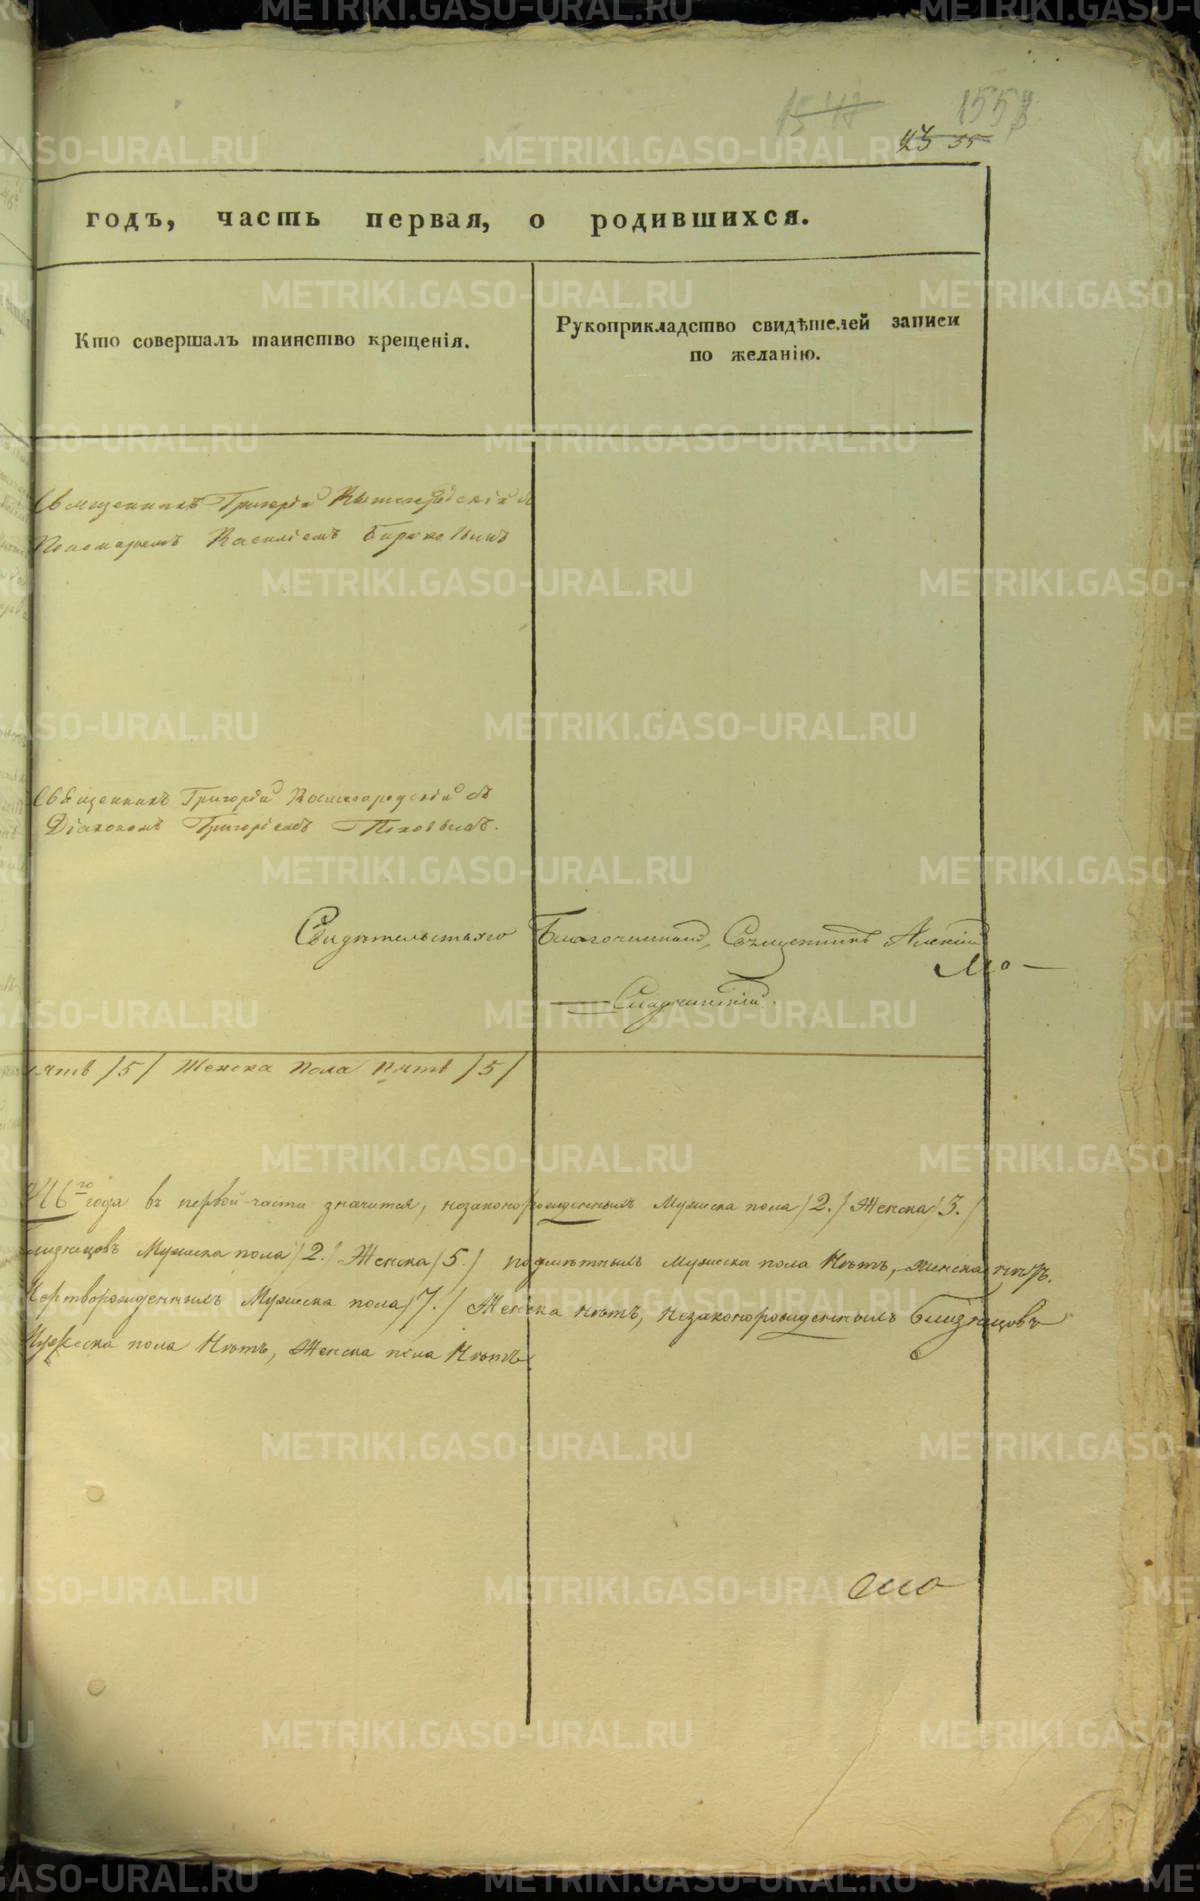 1558
23 35
годъ, часть первая, о родившихся.
Кто совершалъ таинство крещенія.
Рукоприкладство свидѣтелей записи
по желанію.
Священникъ Григорій Вышегородскій съ
Пономаремъ Василіемъ
Священникъ Григорій Вышегородскій съ
Діакономъ Григоріемъ
Благочинный, Священникъ Алексій
Мо-
пять /5/ Женска Пола Пять /5/
го года въ первой части значится, незаконорожденныхъ Мужеска пола /2./ Женска /3./
близнецовъ Мужеска пола /2./ Женска /5./ Мужеска пола Нѣтъ, женска нѣтъ.
Мертворожденныхъ Мужеска пола /7./ Женска нѣтъ, незаконорожденныхъ близнецовъ
Мужеска пола Нѣтъ, Женска пола Нѣтъ.
METRIKI.GASO-URAL.RU